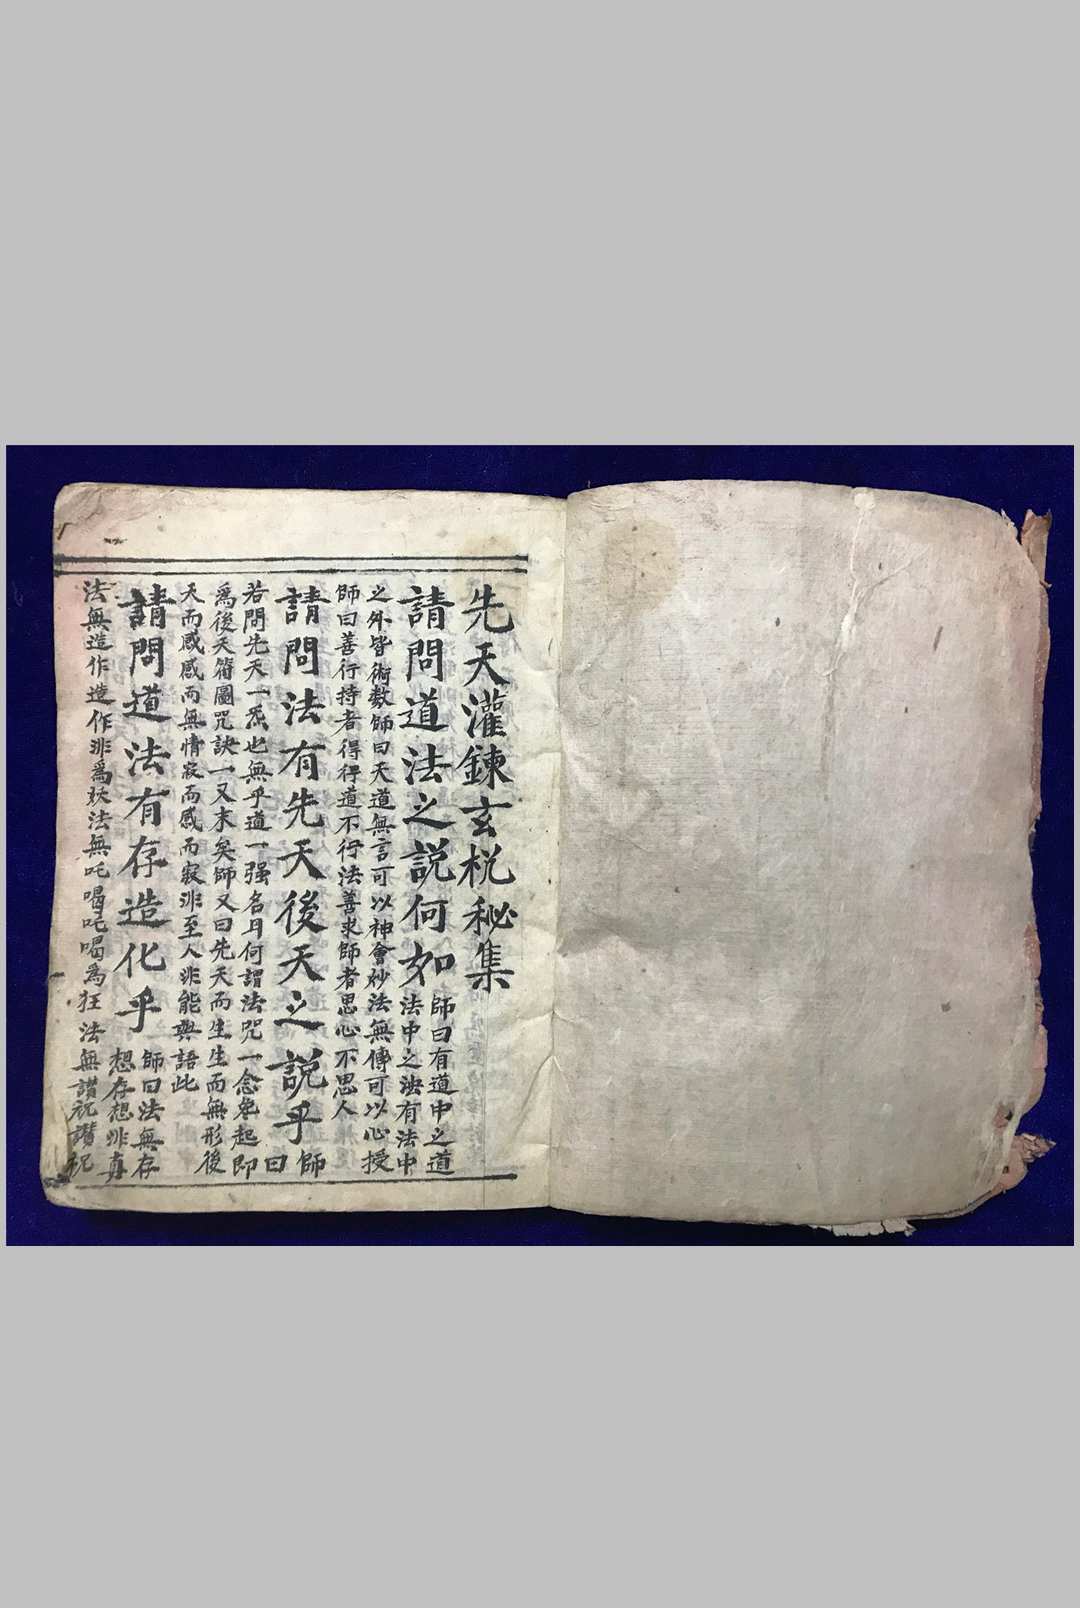 先天灌鍊玄梲秘集
請問道法之說何如師曰有道中之道
法中之法有法中
之外皆術数師曰天道無言可以神會妙法無傳可以心授
師曰善行持者得得道不行法善求師者思心不思人
請問法有先天後天之說乎師
曰
若問先天一炁也無乎道一强名曰何謂法咒一念纔起即
為後天符圖咒訣一又末矣師又曰先天而生生而無形後
天而感感而無情寂而感而寂非至人非能與語此
請問道法有存造化乎師曰法無存
想存想非真
法無造作造作非為妖法無吒喝吒喝為狂法無讃祝讃祝